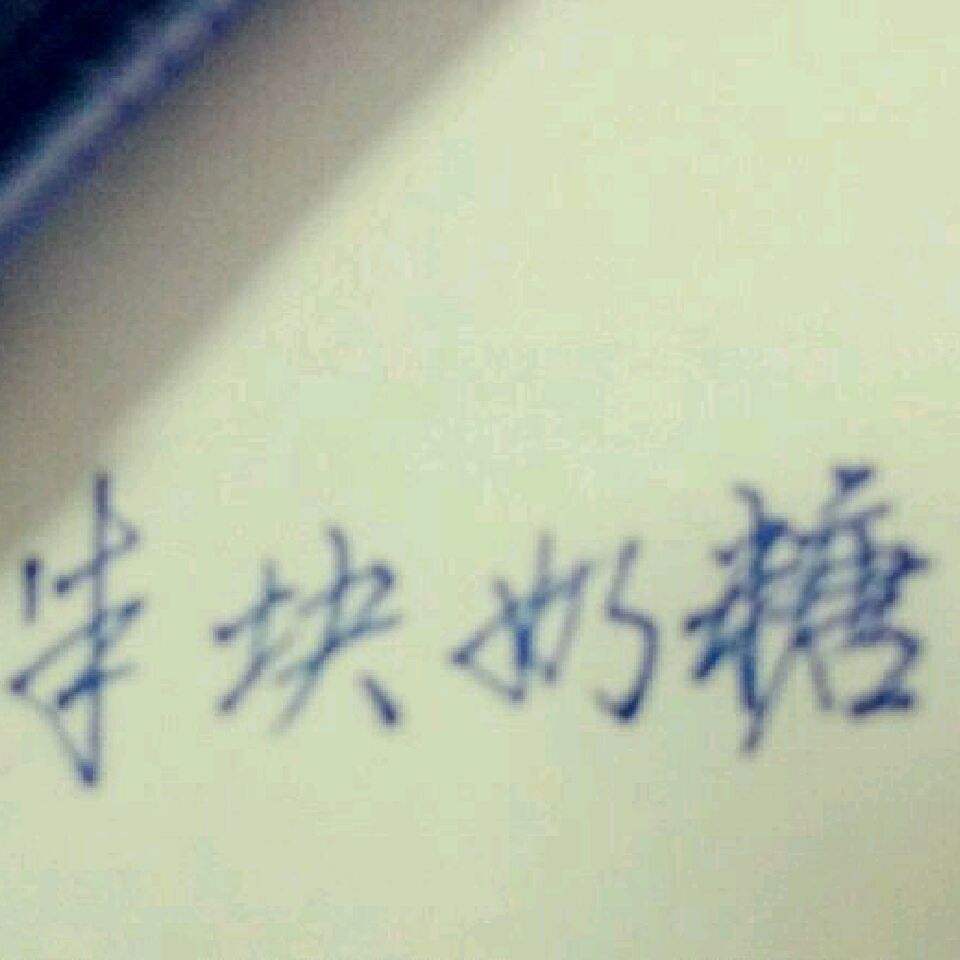 半块奶糖